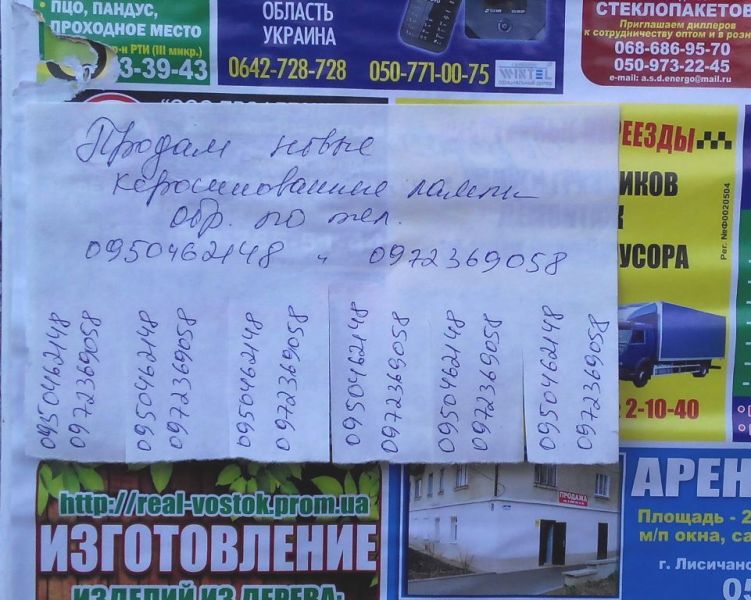 ПЦО, ПАНДУС,
ПРОХОДНОЕ МЕСТО
РТИ (III микр.)
3-39-43
ОБЛАСТЬ
УКРАИНА
0642-728-728 050-771-00-75
СТЕКЛОПАКЕТОВ
Приглашаем диллеров
к сотрудничеству оптом и в розн
068-686-95-70
050-973-22-45
e-mail: a.s.d.energo@mail.ru
Продам новые
керосинованние лампы
обр. по тел.
0950462148 и 0972369058
0950462148
0972369058
0950462148
0972369058
0950462148
0972369058
0950462148
0972369058
0950462148
0972369058
0950462148
0972369058
РЕЕЗДЫ
ИКОВ
УСОРА
Рег. №Ф0020504
2-10-40
http://real-vostok.prom.ua
ИЗГОТОВЛЕНИЕ
ИЗДЕЛИЙ ИЗ ДЕРЕВА:
ПРОДАЖА
АРЕН
Площадь - 2
м/п окна, са
г. Лисичанс
05